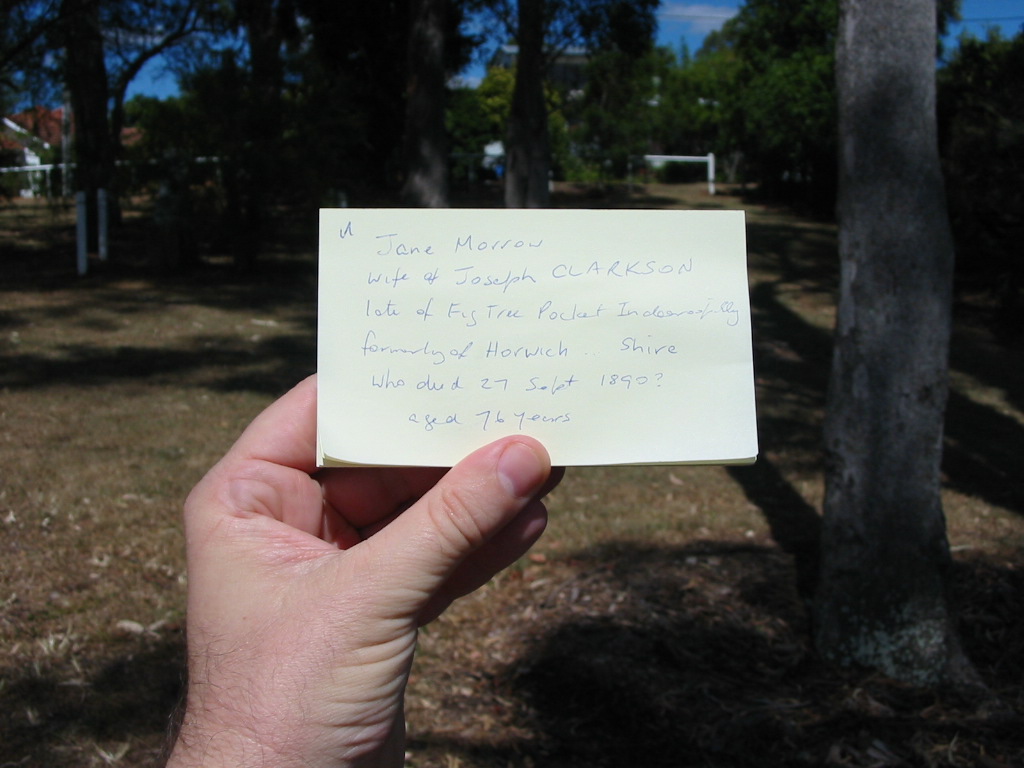 Jane Morrow
wife of Joseph CLARKSON
late of Fig Tree Pocket Indooroopilly
formerly of Horwich .. Shire
who died 27 Sept 1890?
aged 76 years